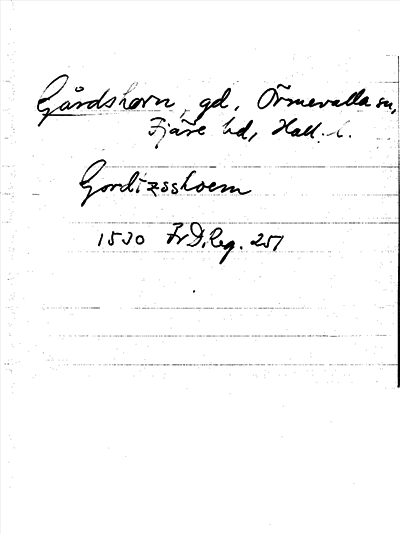 Gårdshorn, gd, Örmevalla sn,
Fjäre hd, Hall. l.
Gordtzsshoern
1530 FrD.Reg. 251